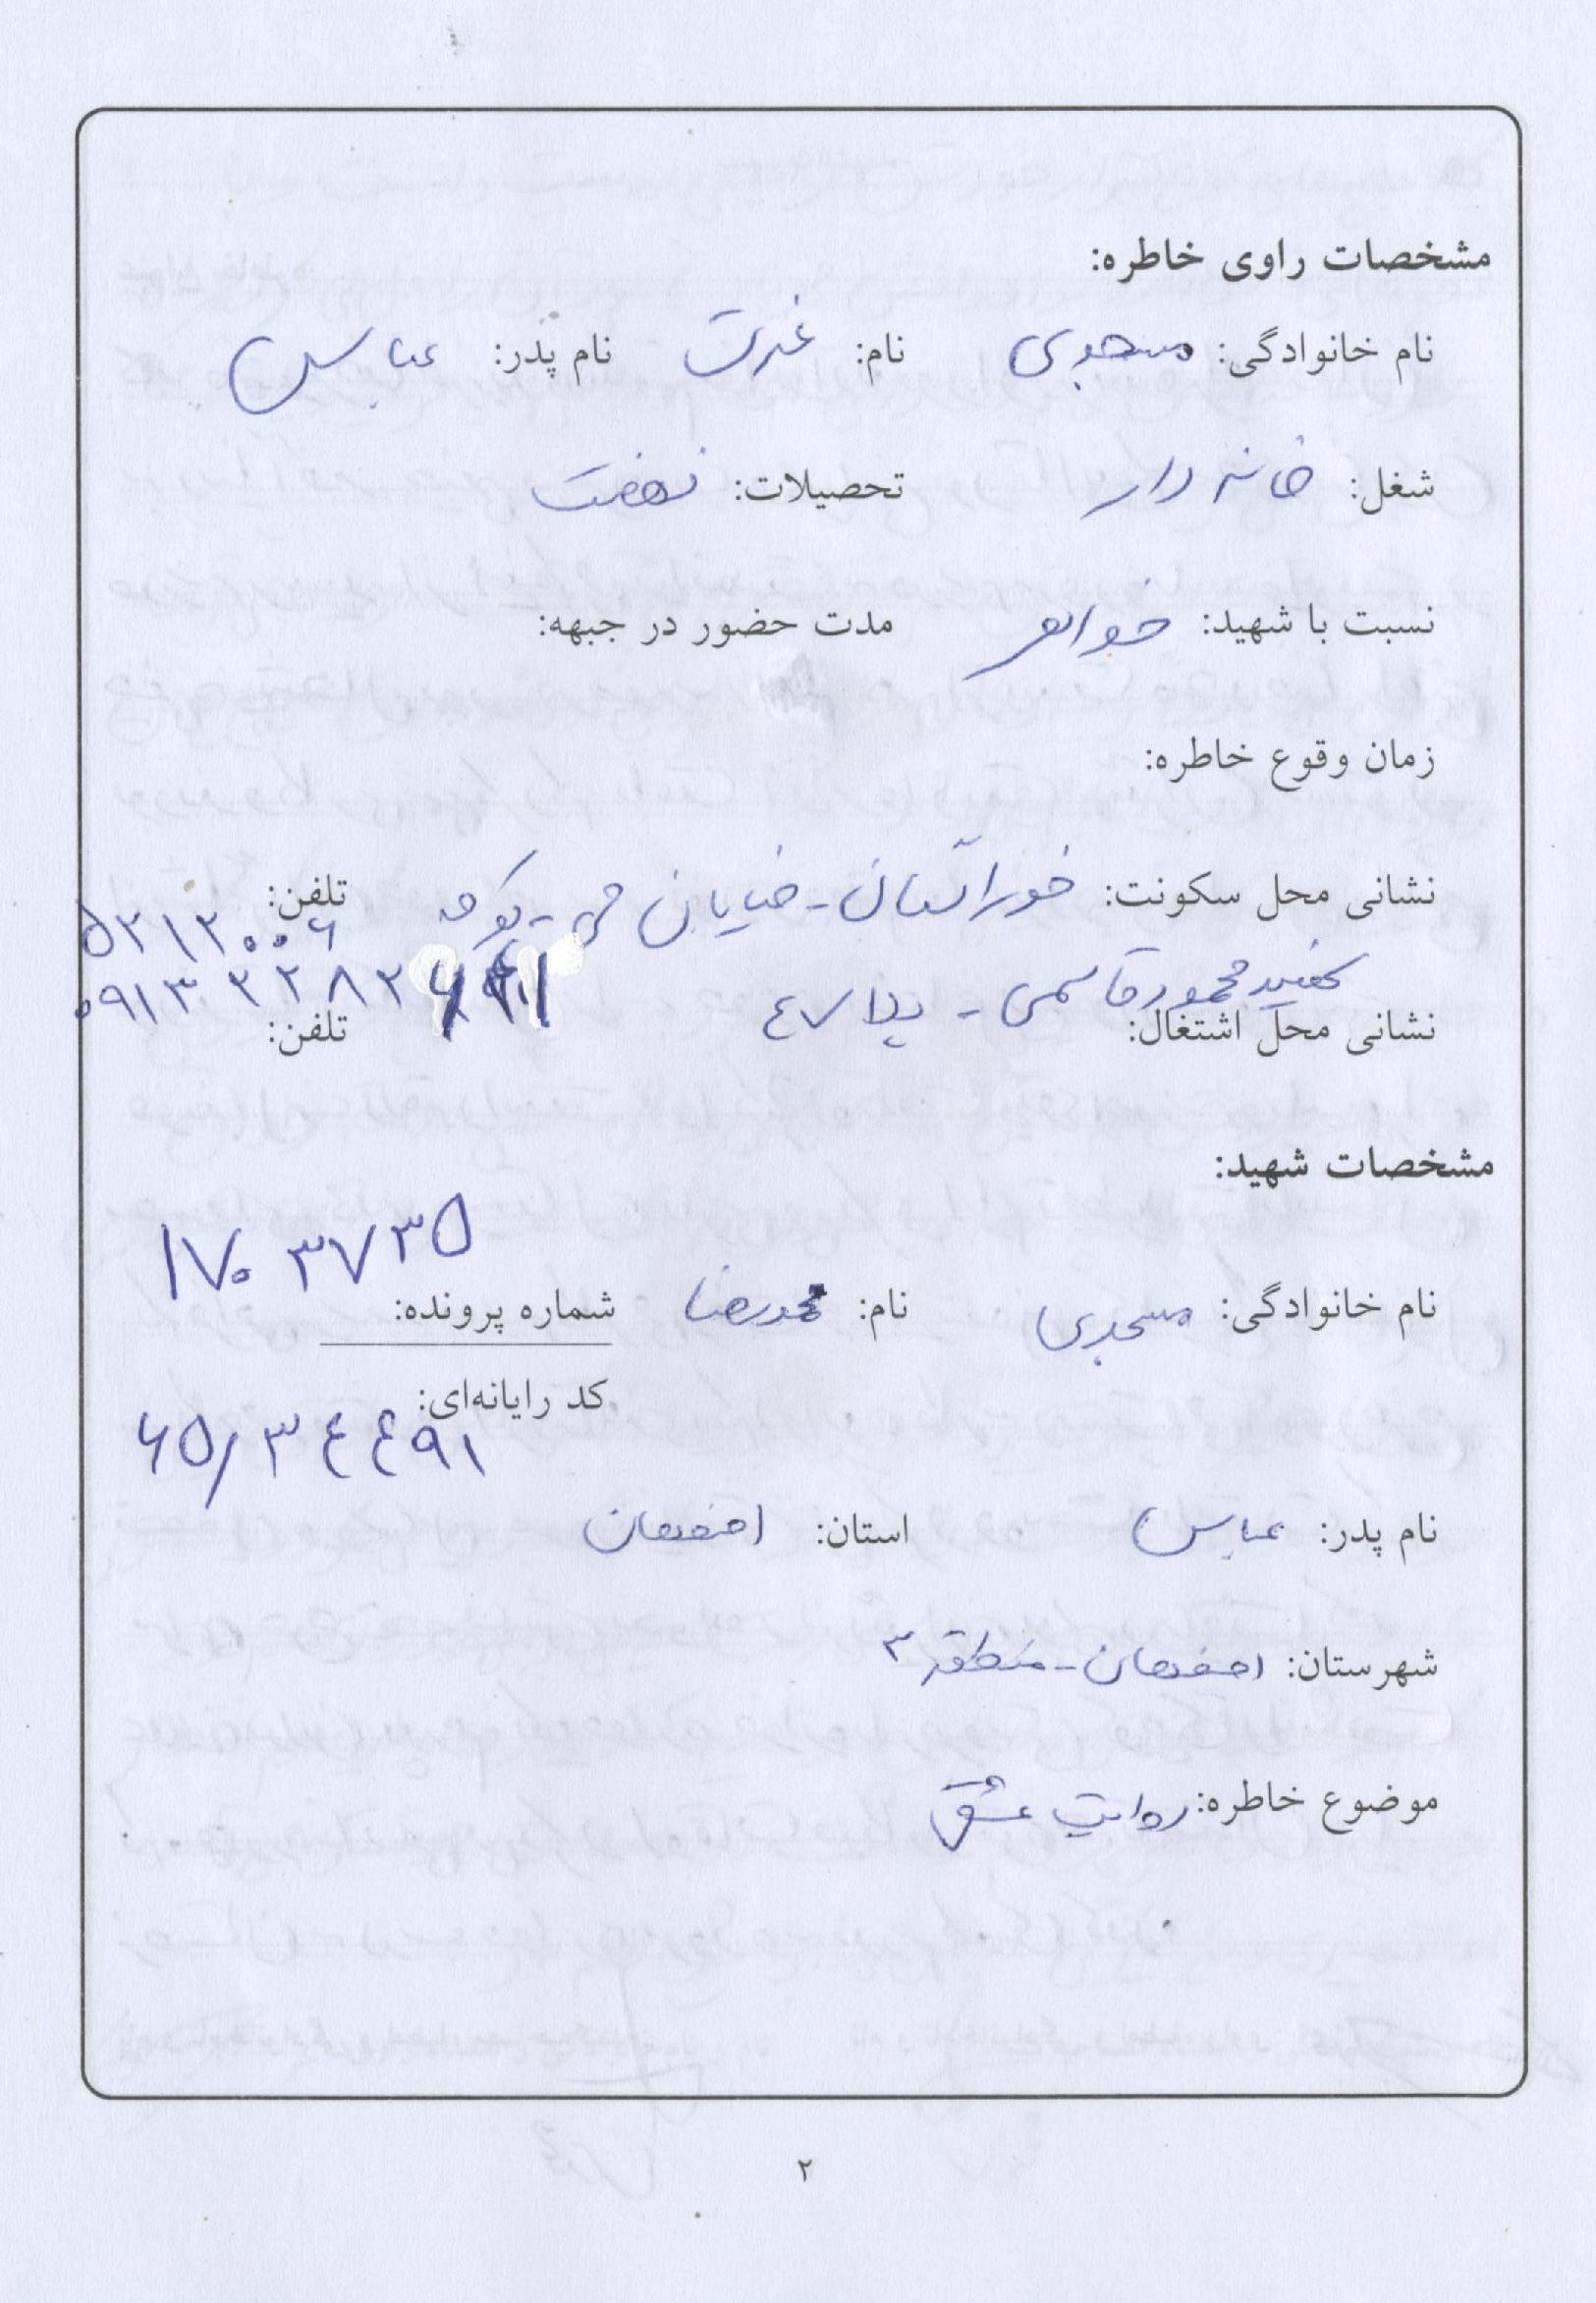 مشخصات راوی خاطره:
نام خانوادگی: مسجدی نام: عزت نام پدر: عباس
شغل: خانه دار تحصیلات: نهضت
نسبت با شهید: خواهر مدت حضور در جبهه:
زمان وقوع خاطره:
نشانی محل سکونت: خوراسگان - خیابان - کوچه تلفن: ۵۲۱۲۰۰۶
شهید محمود قاسمی - پلا ۴۷ ۰۹۱۳۲۲۸۲
نشانی محل اشتغال: تلفن:
مشخصات شهید:
۱۷۰۳۷۳۵
نام خانوادگی: مسجدی نام: محمدرضا شماره پرونده:
کد رایانه‌ای:
۶۵/۳۴۴۹۱
نام پدر: عباس استان: اصفهان
شهرستان: اصفهان - منطقه ۳
موضوع خاطره: روایت عشق
۲